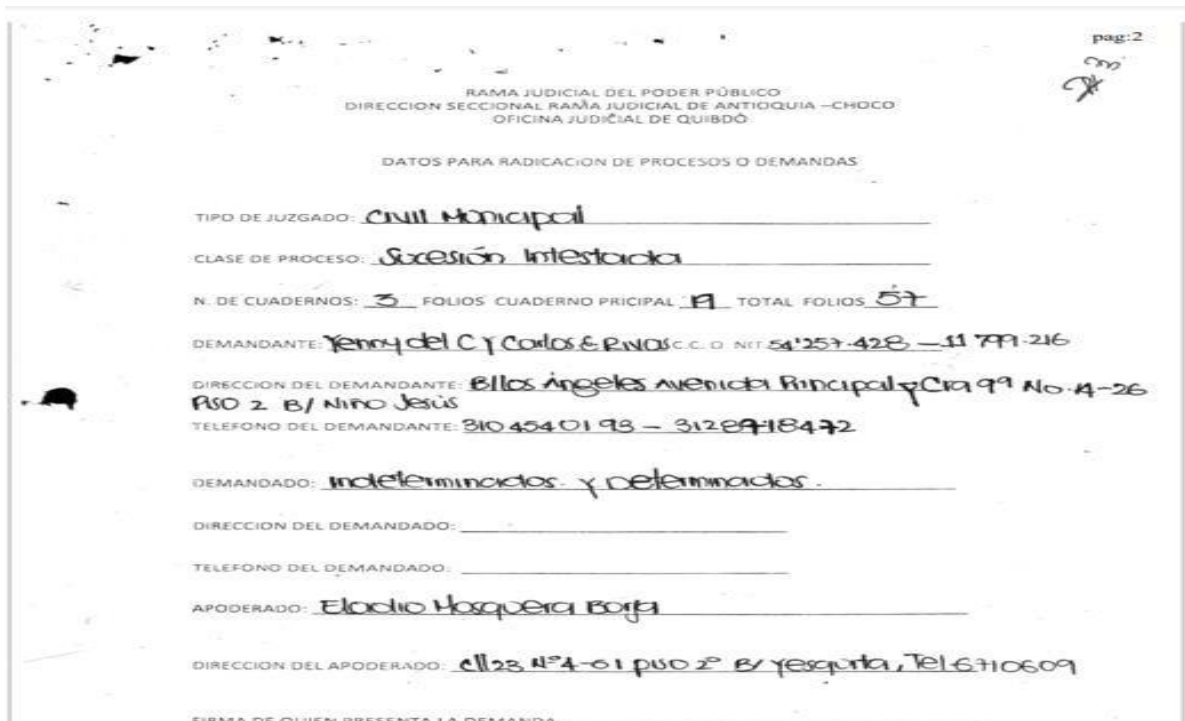 pag:2
RAMA JUDICIAL DEL PODER PÚBLICO
DIRECCION SECCIONAL RAMA JUDICIAL DE ANTIOQUIA –CHOCO
OFICINA JUDICIAL DE QUIBDÓ
DATOS PARA RADICACION DE PROCESOS O DEMANDAS
TIPO DE JUZGADO: Civil Municipal
CLASE DE PROCESO: Sucesión Intestada
N. DE CUADERNOS: 3 FOLIOS CUADERNO PRICIPAL: 19 TOTAL FOLIOS 57
DEMANDANTE: Yenny del C Y Carlos E Rivas C.C. O NIT 54'257.428 – 11 799.216
DIRECCION DEL DEMANDANTE: B/los Ángeles Avenida Principal y Cra 9ª No.
PISO 2 B/ Niño Jesús
TELEFONO DEL DEMANDANTE: 3104540193 –
DEMANDADO: Indeterminados. Y Determinados.
DIRECCION DEL DEMANDADO:
TELEFONO DEL DEMANDADO:
APODERADO: Eladio Mosquera Borja
DIRECCION DEL APODERADO: Cll23 Nº4-01 piso 2º B/ Yesquita, Tel 6710609
FIRMA DE QUIEN PRESENTA LA DEMANDA